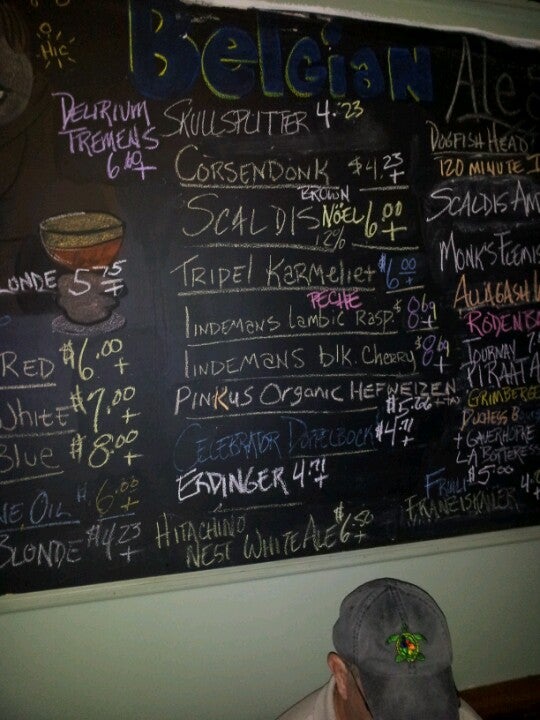 Hic
Belgian Ale
DELIRIUM
TREMENS
6.60+
SKULLSPLITTER 4.23
CORSENDONK $4.23+
BROWN
SCALDIS NOËL 6.00+
12%
TRIPEL KARMELIET $6.00+
PECHE
LINDEMANS LAMBIC RASP. $8.69+
LINDEMANS BLK. CHERRY $8.69+
PINKUS ORGANIC HEFWEIZEN
$5.00+
CELEBRATOR DOPELBOCK $4.71+
ERDINGER 4.71+
HITACHINO
NEST WHITE ALE $6.50+
LONDE 5.75+
RED $6.00+
WHITE $7.00+
BLUE $8.00+
NE OIL $6.00+
BLONDE $4.23+
DOGFISH HEAD
120 MINUTE I
SCALDIS AM
MONK'S FLEMIS
ALLAGASH
RODENB
TOURNAY
PIRAAT
GRIMBERGE
DUCHESS B
LA BOTTERESS
$5.00
FRULI
FRANZISKANER